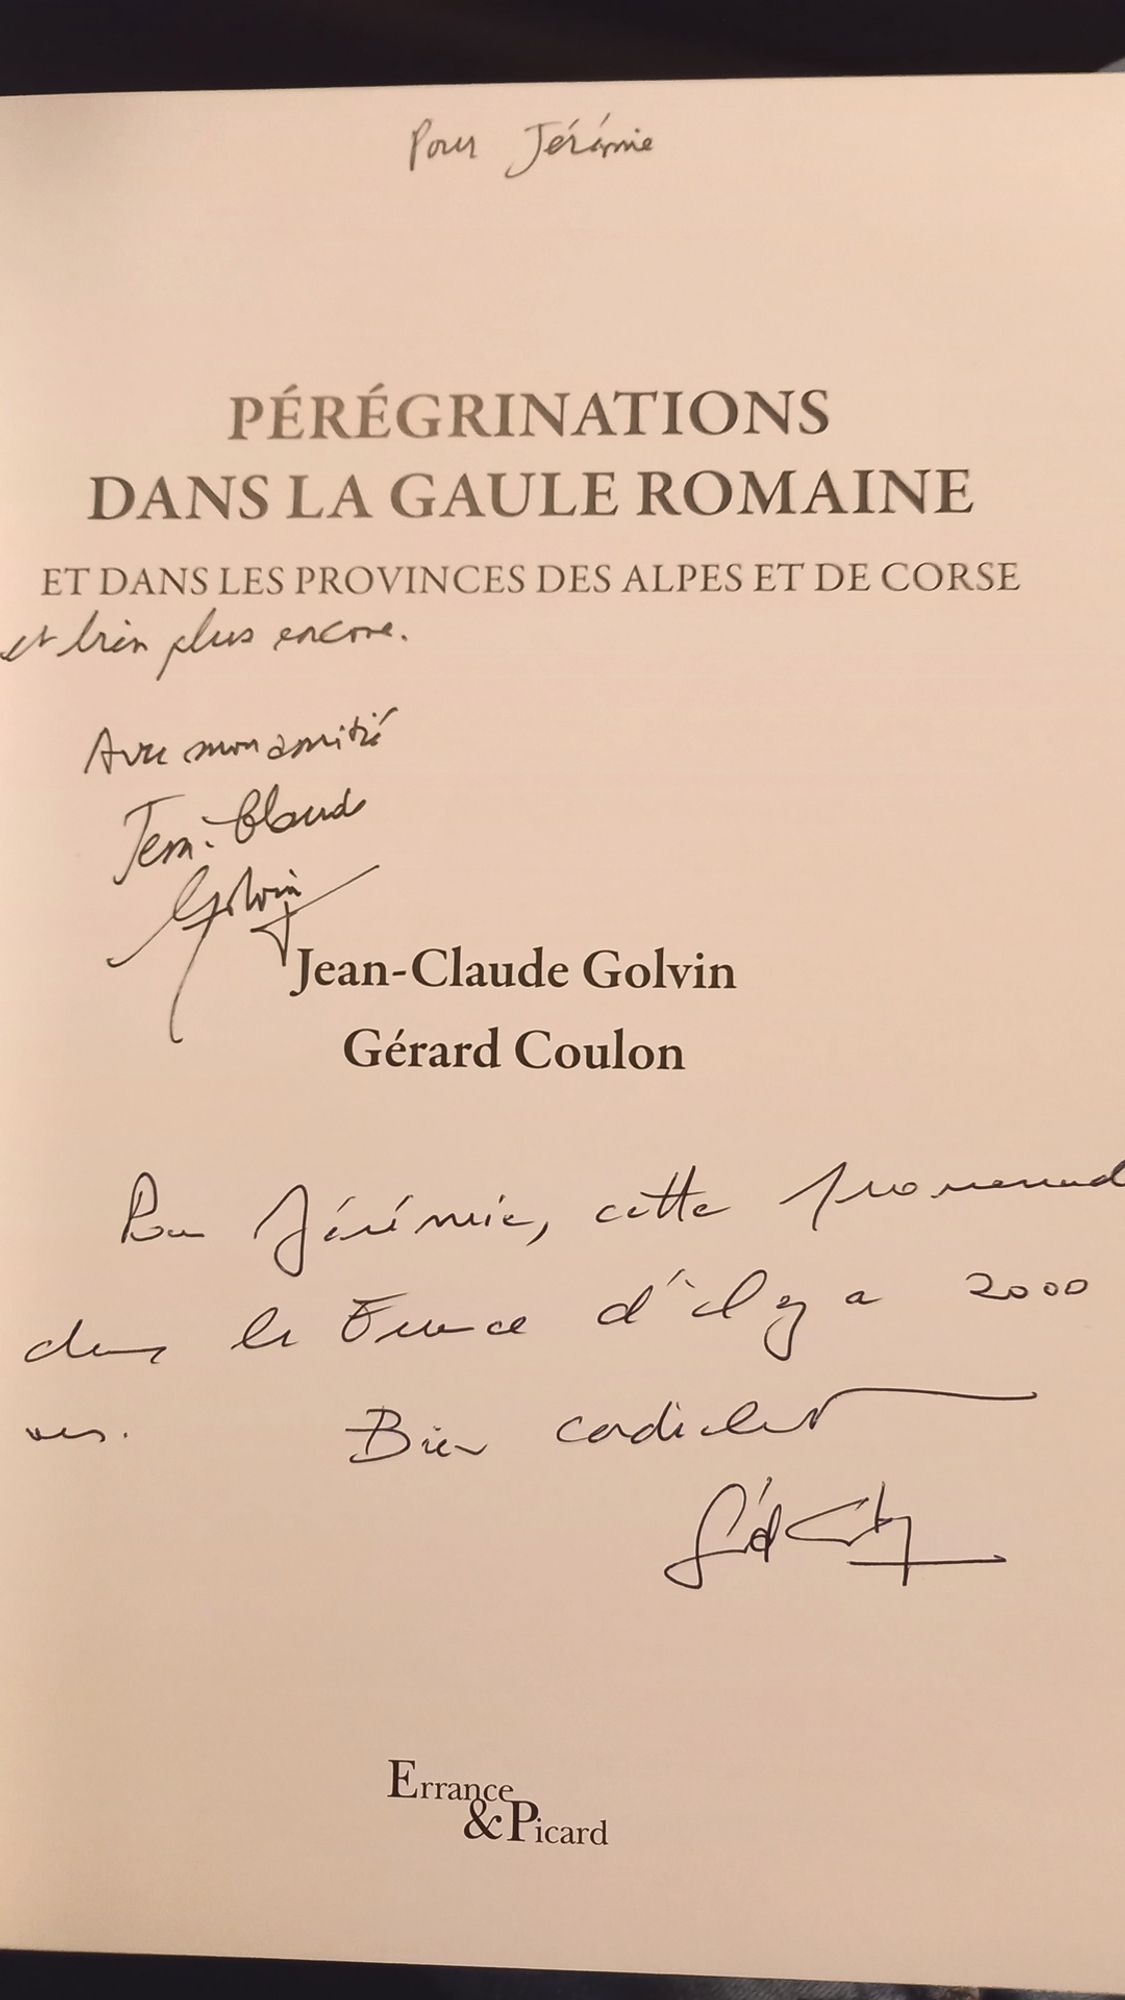 Pour Jérémie
PÉRÉGRINATIONS
DANS LA GAULE ROMAINE
ET DANS LES PROVINCES DES ALPES ET DE CORSE
et bien plus encore.
Avec mon amitié
Jean-Claude
Golvin
Jean-Claude Golvin
Gérard Coulon
Pour Jérémie, cette promenad
dans la France d'il y a 2000
ans. Bien cordialement
Errance
&Picard